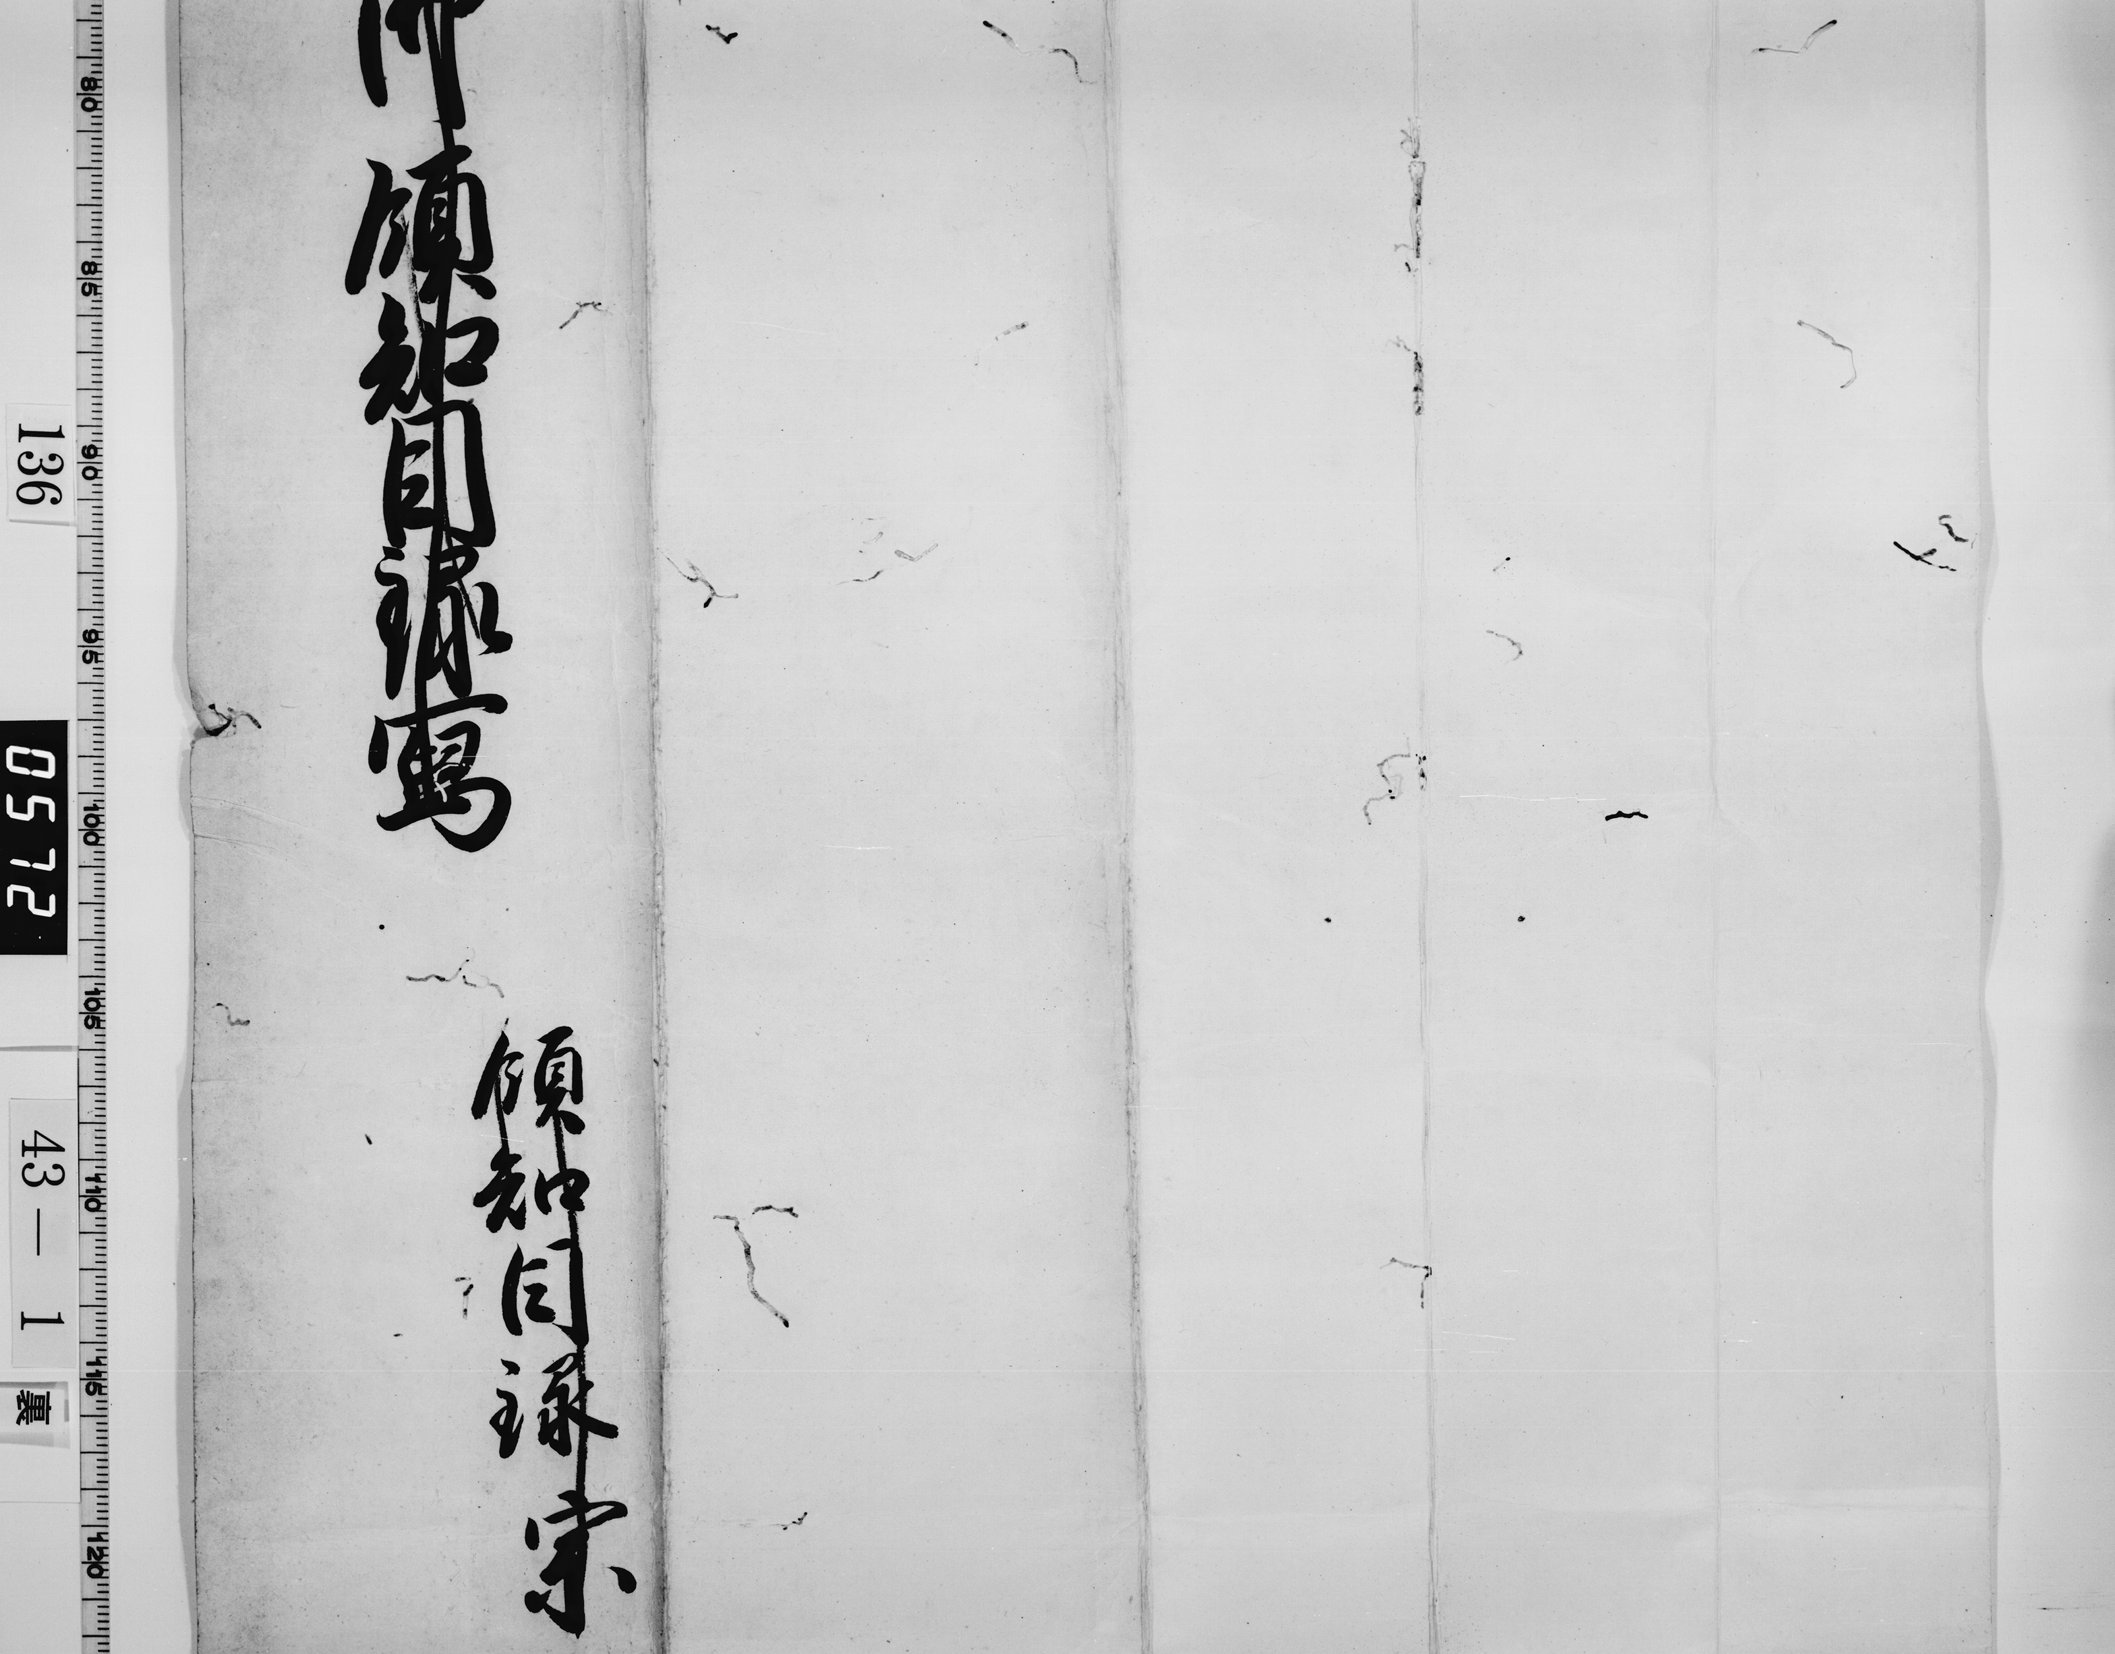 領知目録案
領知目録寫
80 85 90 95 100 105 110 115 120
136
0572
43—1
裏